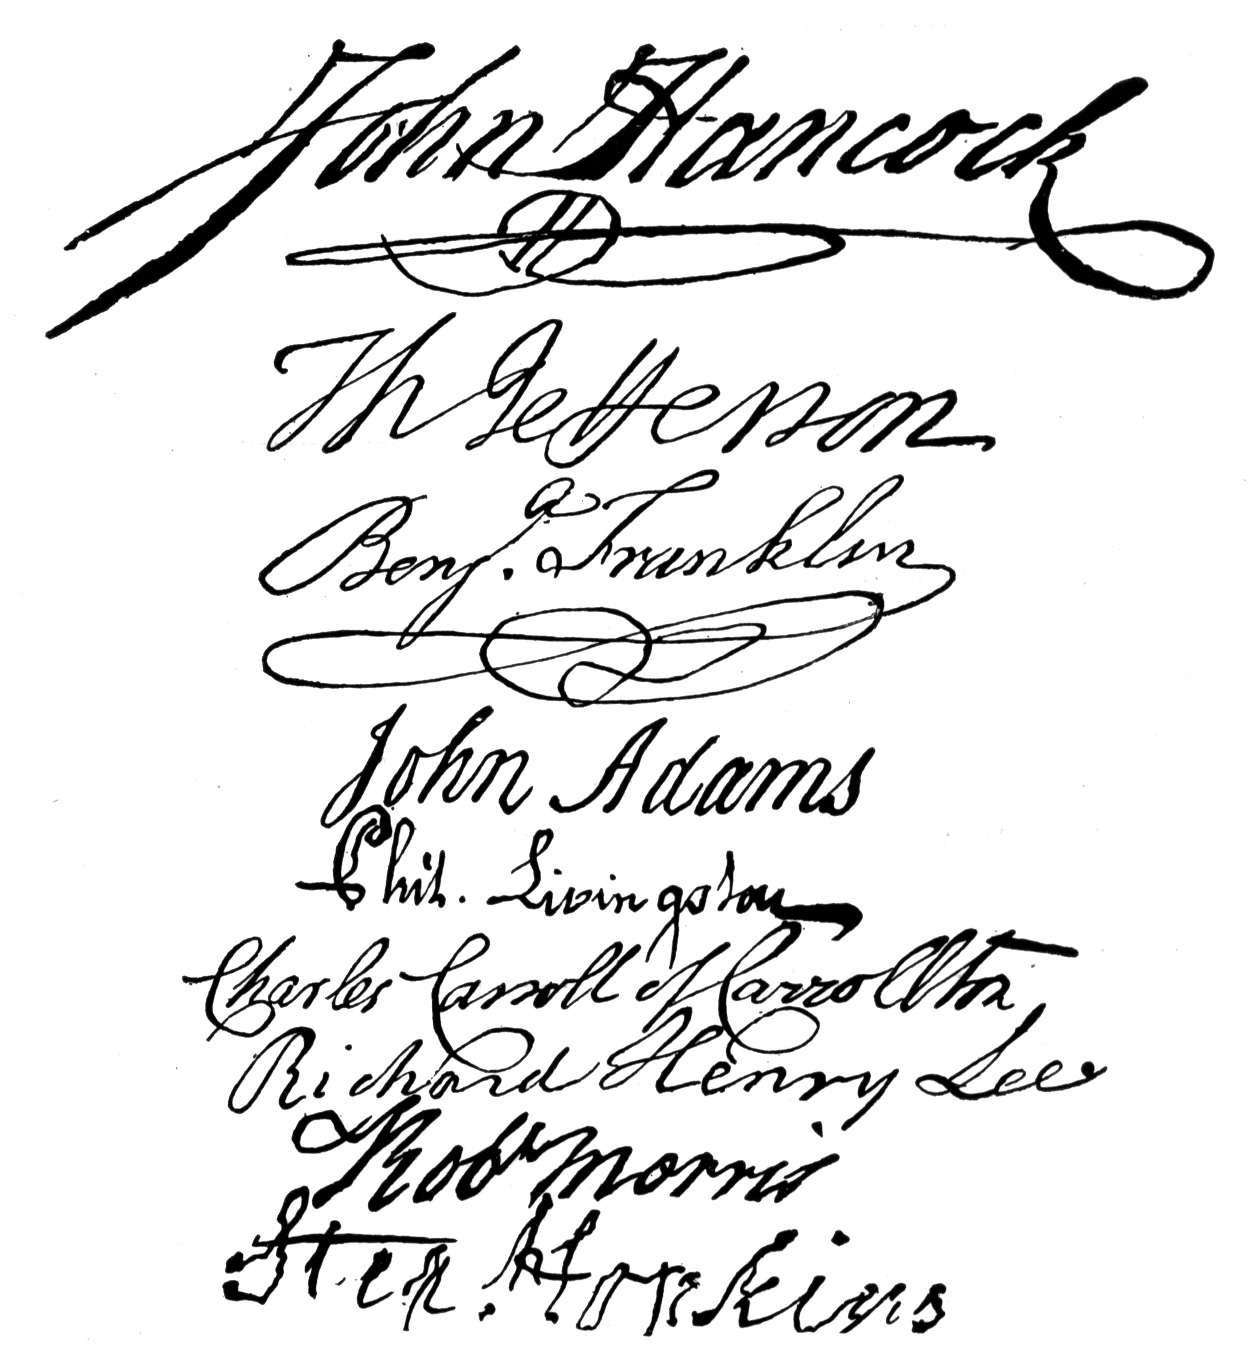 John Hancock
H
Th Jefferson
Benj.a Franklin
John Adams
Phil. Livingston
Charles Carroll of Carrollton
Richard Henry Lee
Robt Morris
Step. Hopkins